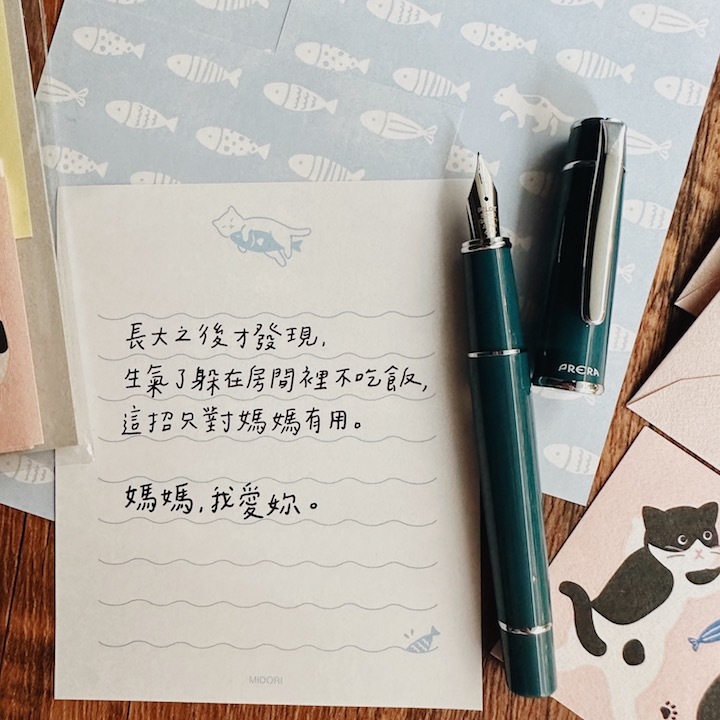 長大之後才發現,
生氣了躲在房間裡不吃飯,
這招只對媽媽有用。
媽媽,我愛妳。
MIDORI
PRERA